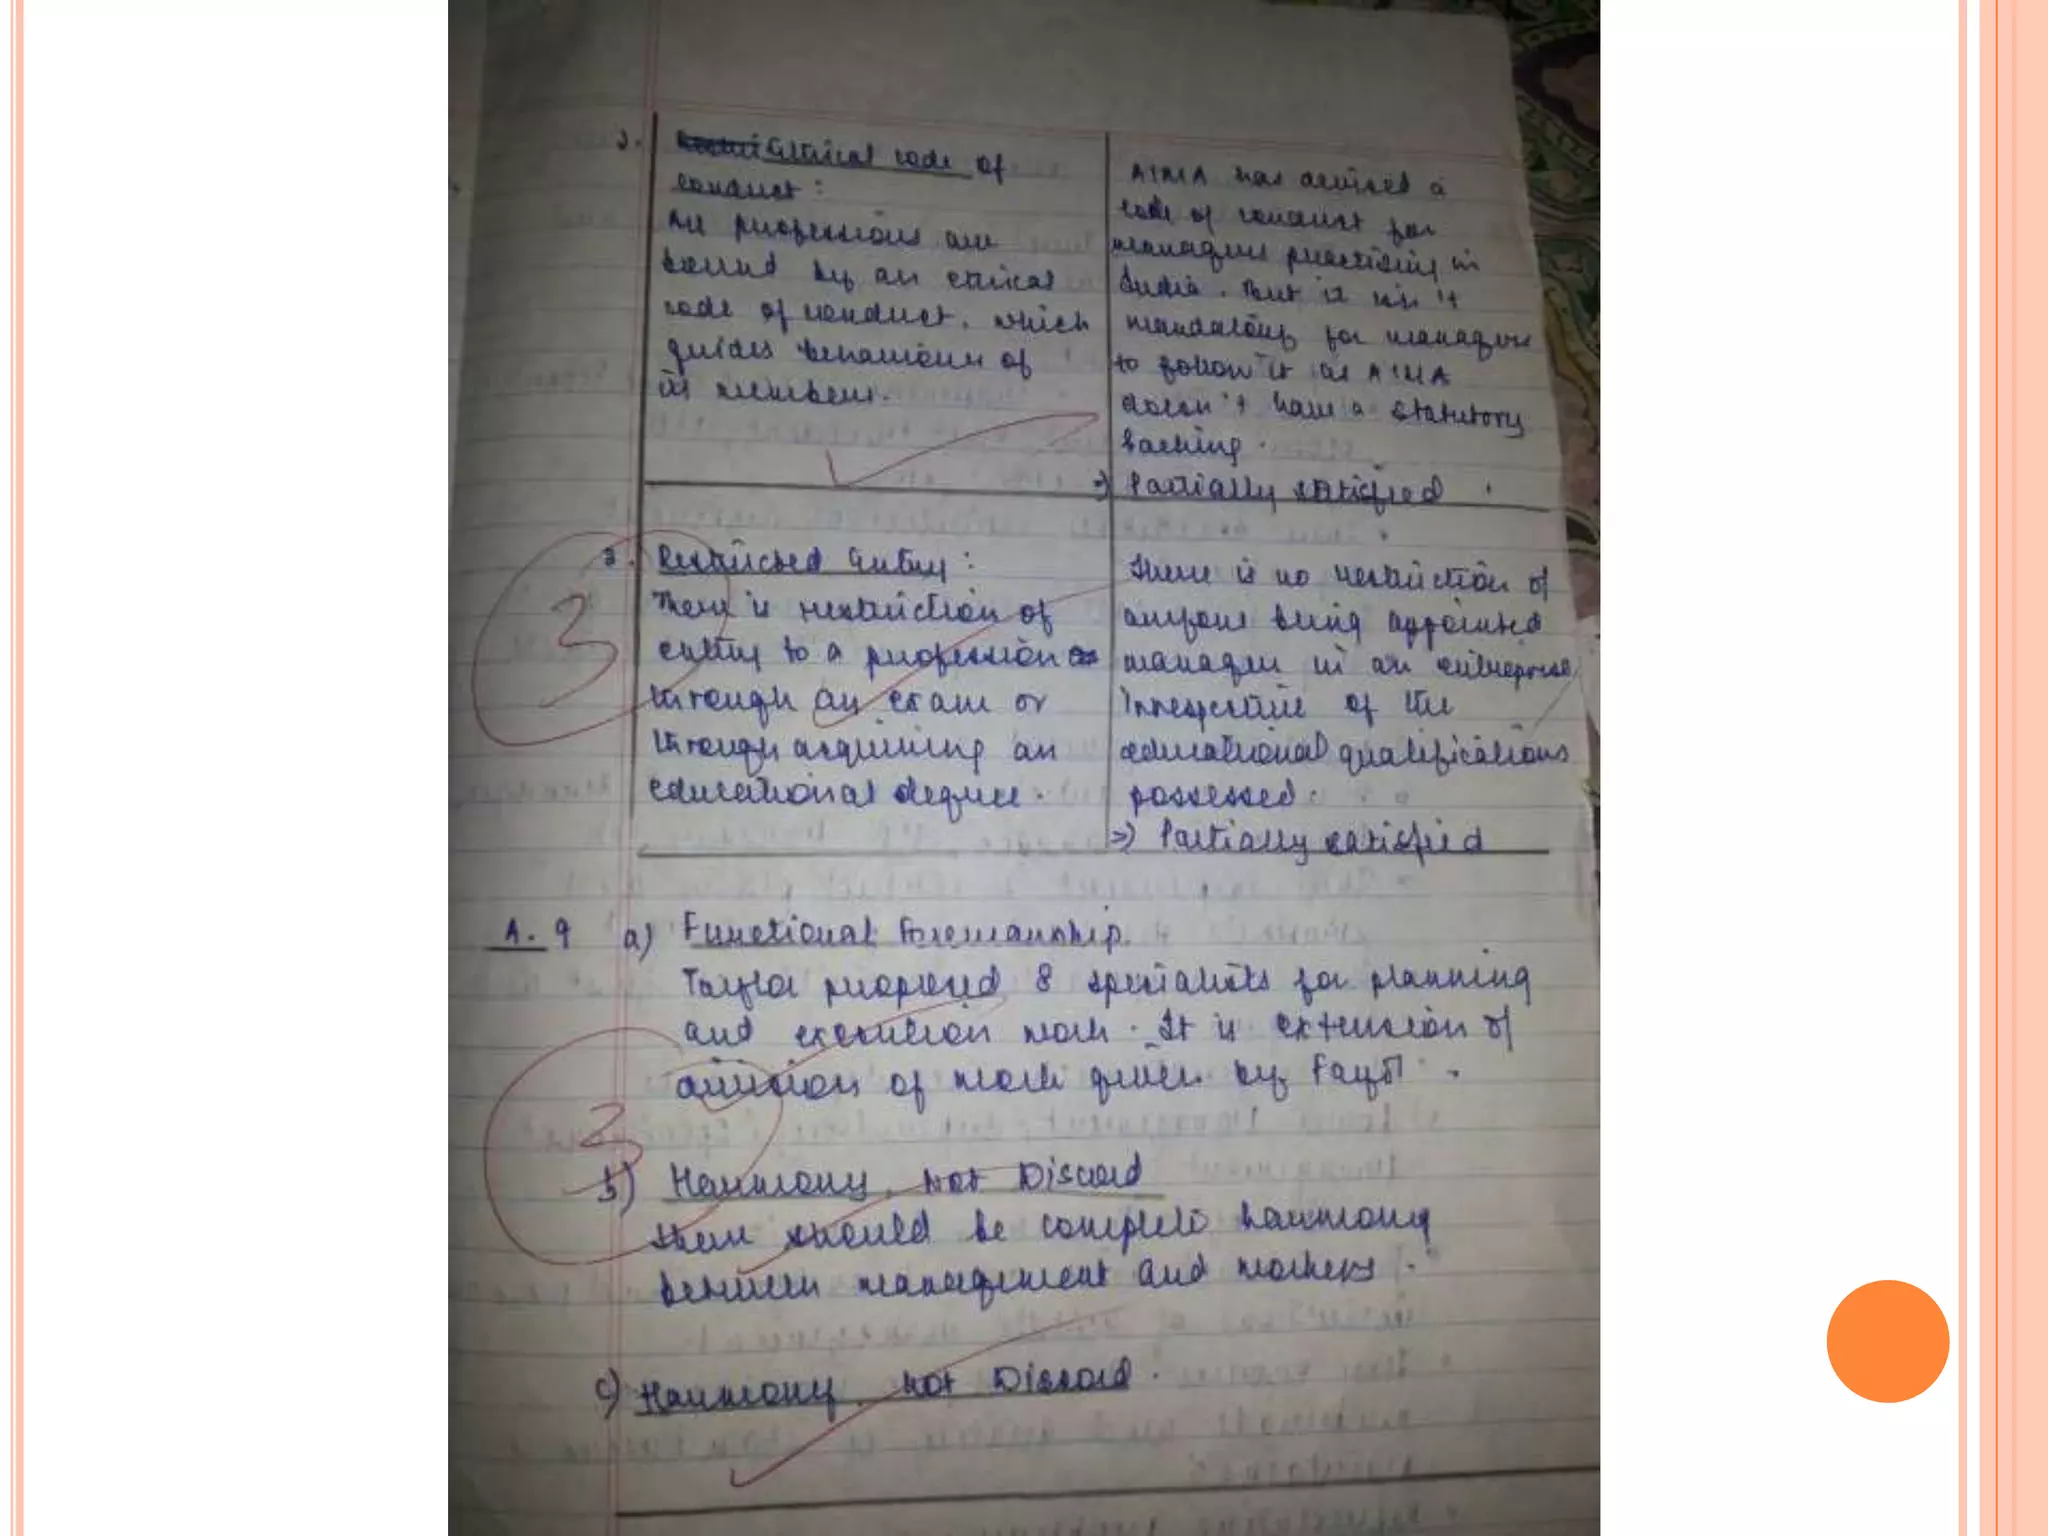 2.
Ethical code of
conduct :
All professions are
bound by an ethical
code of conduct, which
guides behaviour of
its members.
AIMA has devised a
code of conduct for
managers practising in
India. But it isn't
mandatory for managers
to follow it as AIMA
doesn't have a statutory
backing.
=) Partially satisfied.
3. Restricted Entry :
There is restriction of
entry to a profession
through an exam or
through acquiring an
educational degree.
There is no restriction of
anyone being appointed
manager in an enterprise
irrespective of the
educational qualifications
possessed.
=) Partially satisfied
3
A. 9 a) Functional Foremanship.
Taylor proposed 8 specialists for planning
and execution work. It is extension of
division of work given by Fayol.
3
b) Harmony, not Discord
There should be complete harmony
between management and workers.
c) Harmony, not Discord.